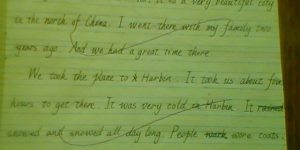 It is a very beautiful city
in the north of China. I went there with my family two
years ago. And we had a great time there.
We took the plane to Harbin. It took us about four
hours to get there. It was very cold in Harbin. It rained
snowed and snowed all day long. People wore coats.